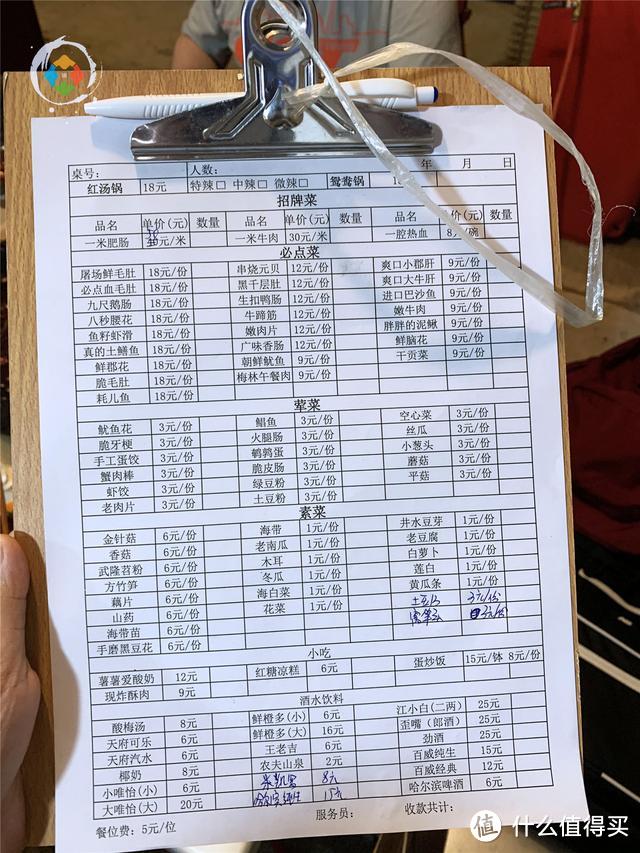 桌号: 人数: 年 月 日
红汤锅 18元 特辣□ 中辣□ 微辣□ 鸳鸯锅
招牌菜
品名 单价(元) 数量 品名 单价(元) 数量 品名 价(元) 数量
一米肥肠 元/米 一米牛肉 30元/米 一腔热血 8元/碗
必点菜
屠场鲜毛肚 18元/份 串烧元贝 12元/份 爽口小郡肝 9元/份
必点血毛肚 18元/份 黑千层肚 12元/份 爽口大牛肝 9元/份
九尺鹅肠 18元/份 生扣鸭肠 12元/份 进口巴沙鱼 9元/份
八秒腰花 18元/份 牛蹄筋 12元/份 嫩牛肉 9元/份
鱼籽虾滑 18元/份 嫩肉片 12元/份 胖胖的泥鳅 9元/份
真的土鳝鱼 18元/份 广味香肠 12元/份 鲜脑花 9元/份
鲜郡花 18元/份 朝鲜鱿鱼 9元/份 干贡菜 9元/份
脆毛肚 18元/份 梅林午餐肉 9元/份
耗儿鱼 18元/份
荤菜
鱿鱼花 3元/份 鲳鱼 3元/份 空心菜 3元/份
脆牙梗 3元/份 火腿肠 3元/份 丝瓜 3元/份
手工蛋饺 3元/份 鹌鹑蛋 3元/份 小葱头 3元/份
蟹肉棒 3元/份 脆皮肠 3元/份 蘑菇 3元/份
虾饺 3元/份 绿豆粉 3元/份 平菇 3元/份
老肉片 3元/份 土豆粉 3元/份
素菜
金针菇 6元/份 海带 1元/份 井水豆芽 1元/份
香菇 6元/份 老南瓜 1元/份 老豆腐 1元/份
武隆苕粉 6元/份 木耳 1元/份 白萝卜 1元/份
方竹笋 6元/份 冬瓜 1元/份 莲白 1元/份
藕片 6元/份 海白菜 1元/份 黄瓜条 1元/份
山药 6元/份 花菜 1元/份 土豆片 3元/份
海带苗 6元/份 3元/份
手磨黑豆花 6元/份
小吃
薯薯爱酸奶 12元 红糖凉糕 6元 蛋炒饭 15元/钵 8元/份
现炸酥肉 9元
酒水饮料
酸梅汤 8元 鲜橙多(小) 6元 江小白(二两) 25元
天府可乐 6元 鲜橙多(大) 16元 歪嘴(郎酒) 25元
天府汽水 6元 王老吉 6元 劲酒 25元
椰奶 8元 农夫山泉 2元 百威纯生 15元
小唯怡(小) 6元 8元 百威经典 12元
大唯怡(大) 20元 哈尔滨纯生 15元 哈尔滨啤酒 6元
餐位费: 5元/位 服务员: 收款共计:
值 什么值得买